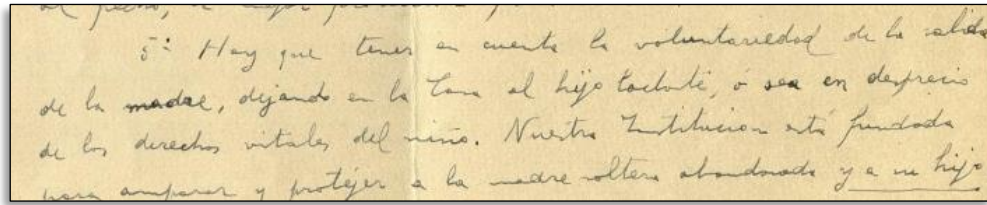 al pecho, el mejor
5º: Hay que tener en cuenta la voluntariedad de la salida
de la madre, dejando en la Casa al hijo lactante, ó sea en desprecio
de los derechos vitales del niño. Nuestra Institucion está fundada
para amparar y protejer a la madre soltera abandonada y a su hijo